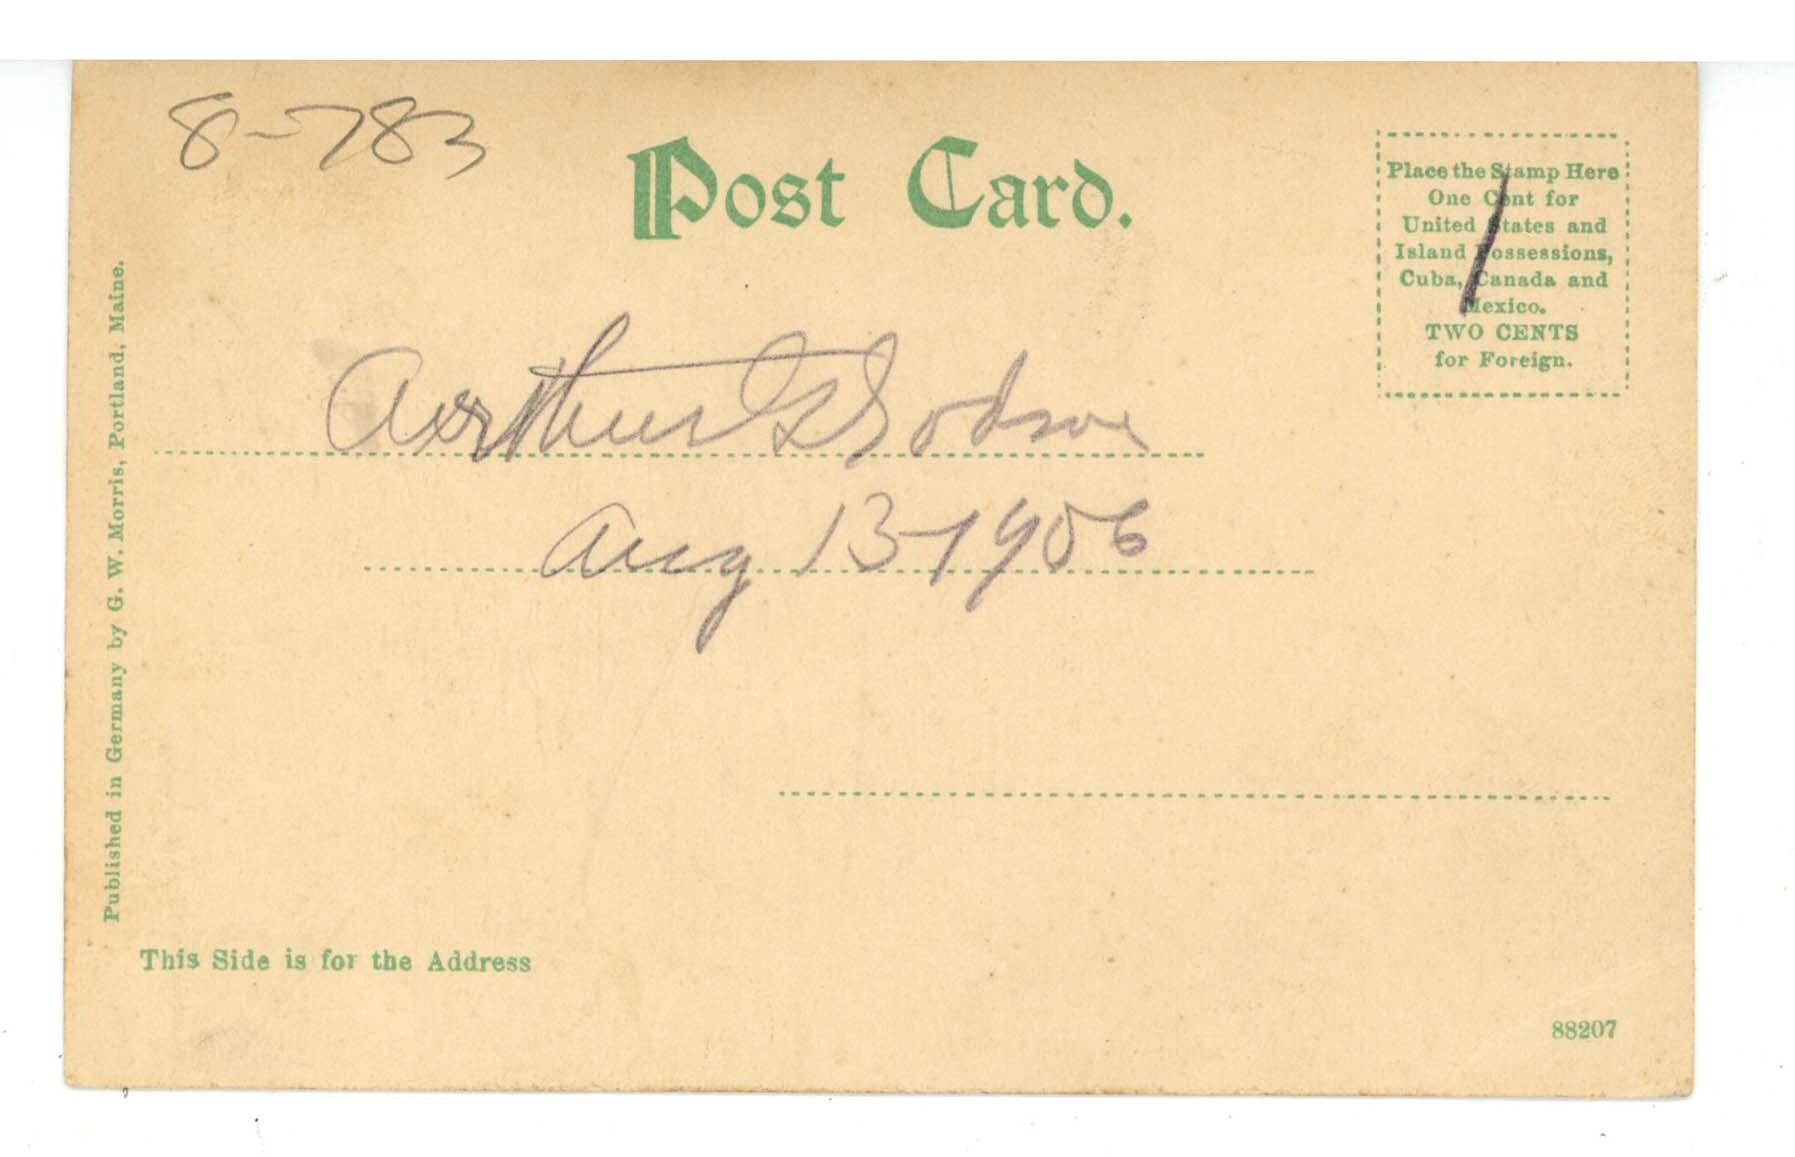 8-783
Post Card.
Place the Stamp Here
One Cent for
United States and
Island Possessions,
Cuba, Canada and
Mexico.
TWO CENTS
for Foreign.
Arthur
Aug 13-1906
Published in Germany by G. W. Morris, Portland, Maine.
This Side is for the Address
88207